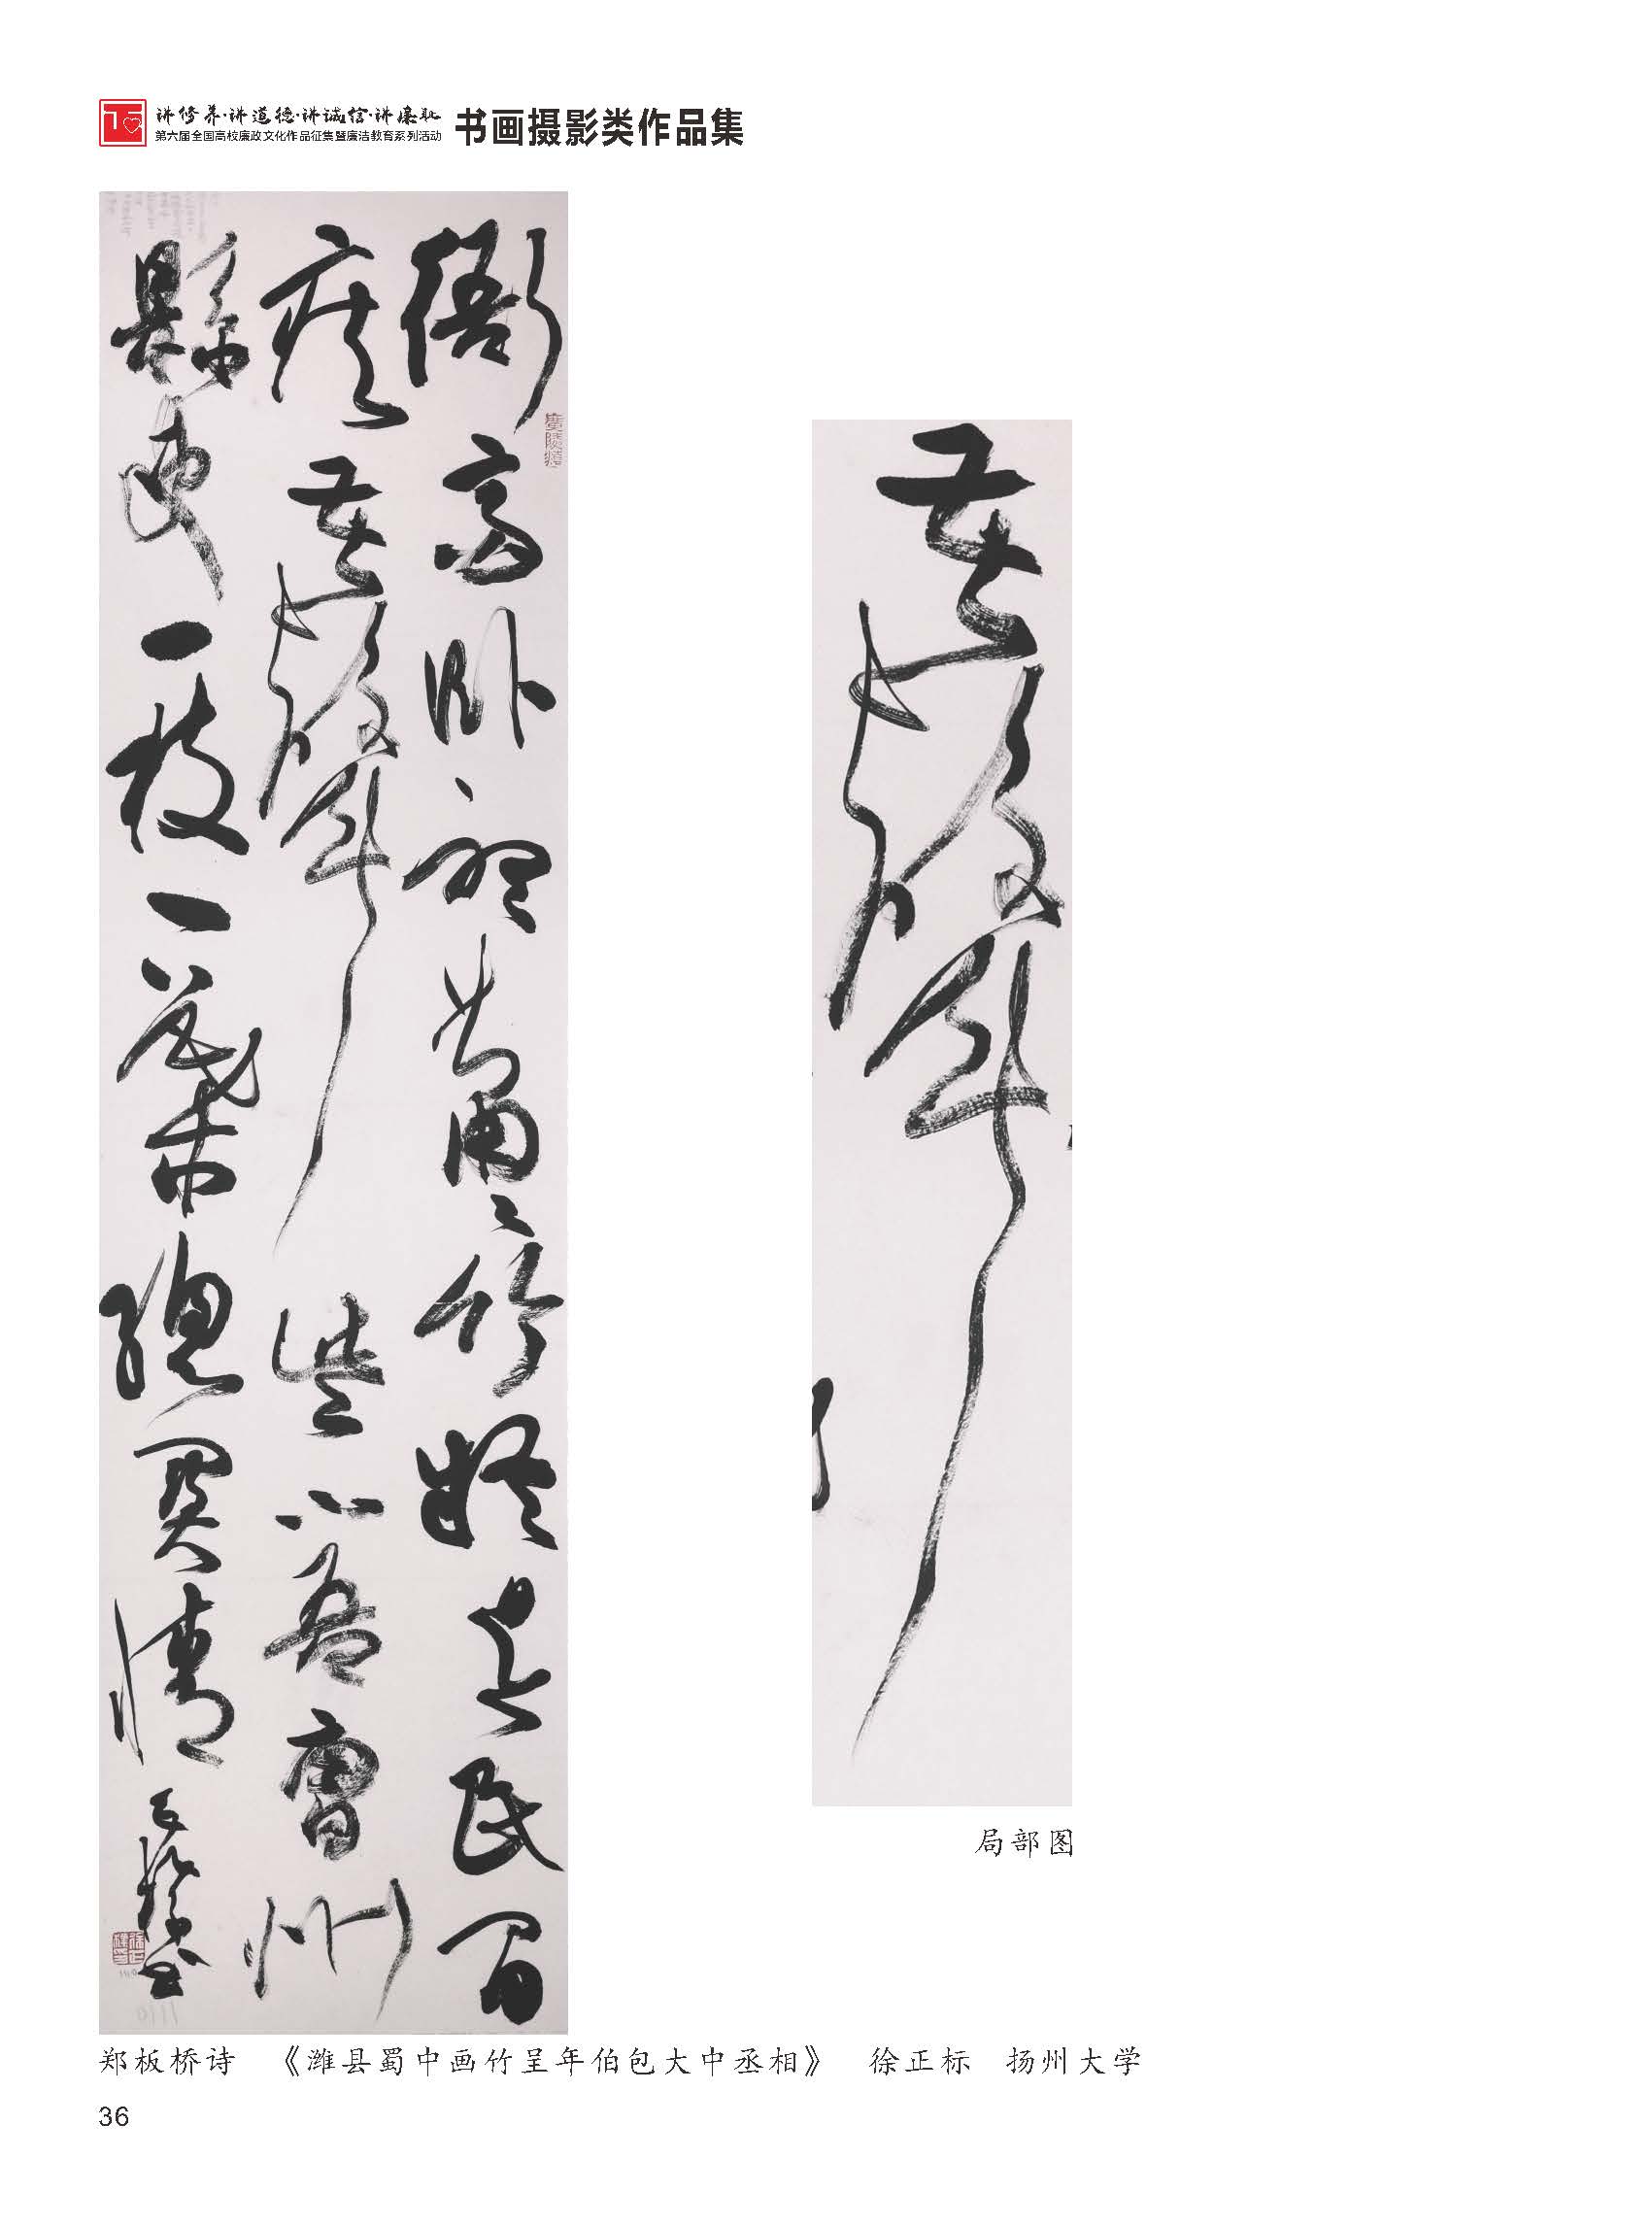 讲修养·讲道德·讲诚信·讲廉耻
第六届全国高校廉政文化作品征集暨廉洁教育系列活动
书画摄影类作品集
衙齋卧聽蕭々竹疑是民間
疾苦聲些小吾曹州
縣吏一枝一葉總關情
正標書
苦聲
局部图
郑板桥诗 《潍县蜀中画竹呈年伯包大中丞相》 徐正标 扬州大学
36